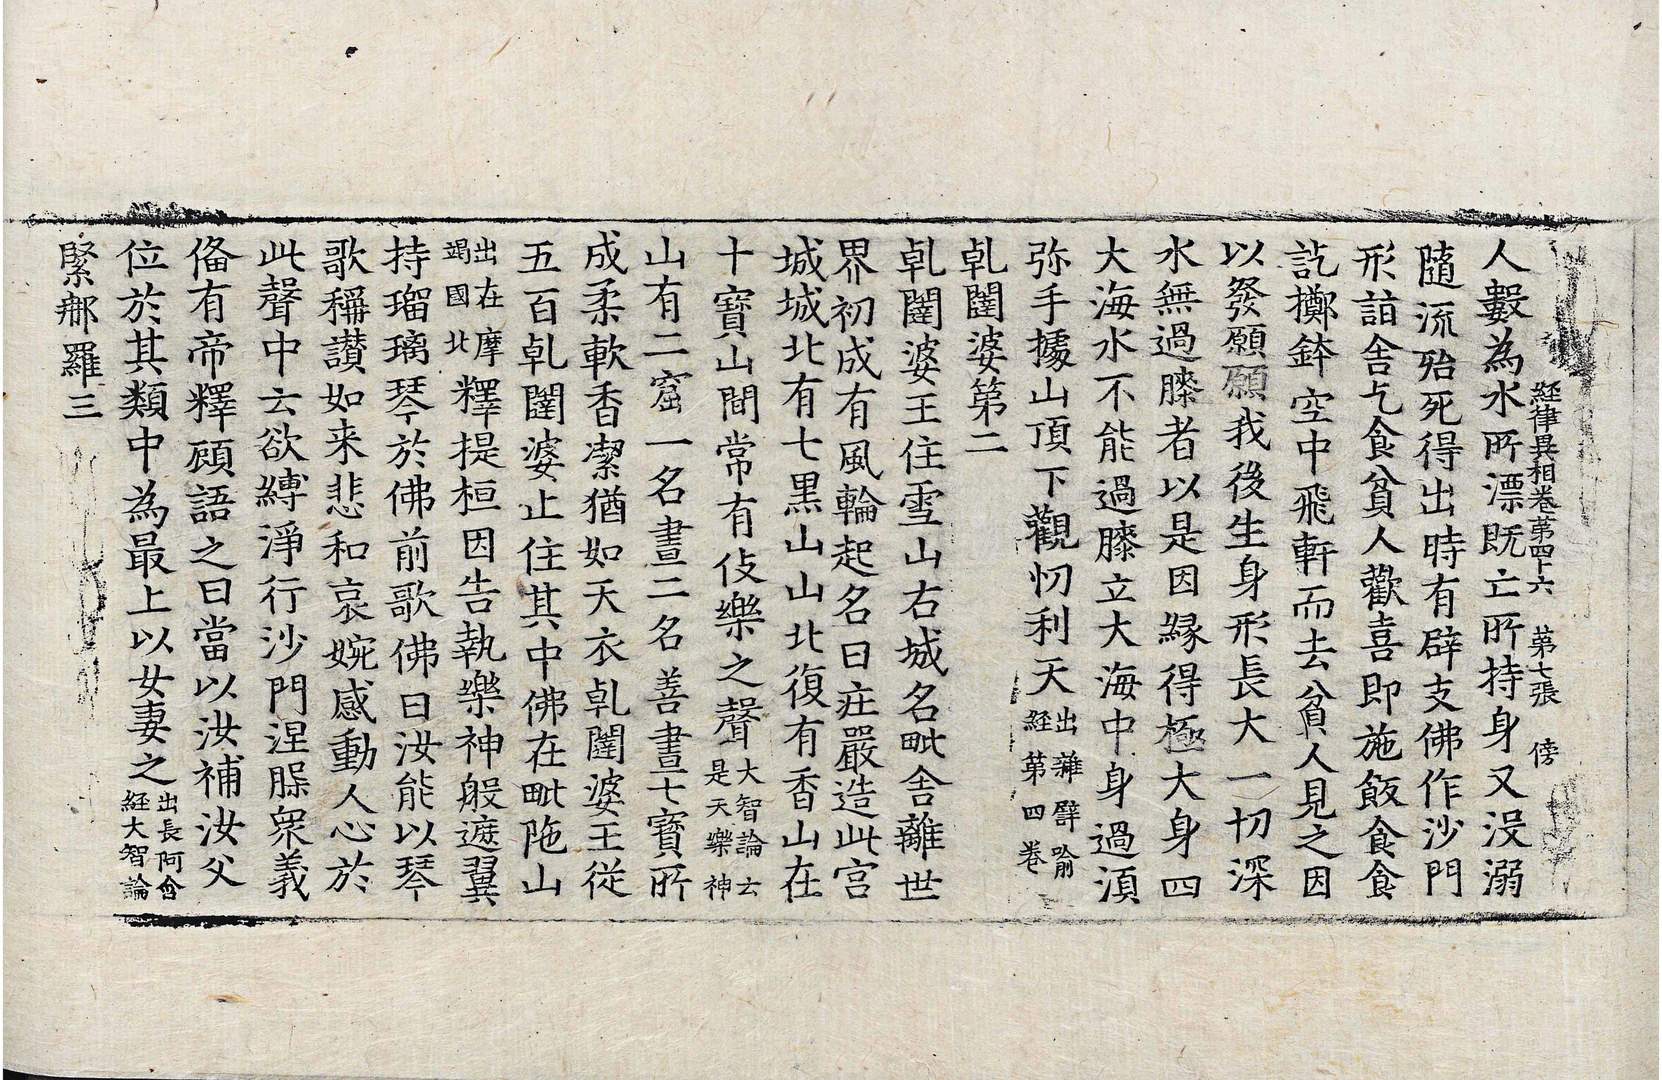 経律異相卷第四十六　第七張　傍
人數為水所漂旣亡所持身又没溺
隨流殆死得出時有辟支佛作沙門
形詣舍乞食貧人歡喜即施飯食食
訖擲鉢空中飛軒而去貧人見之因
以發願願我後生身形長大一切深
水無過膝者以是因縁得極大身四
大海水不能過膝立大海中身過湏
弥手據山頂下觀忉利天出雜譬喻經第四卷
乹闥婆第二
乹闥婆王住雪山右城名毗舍離世
界初成有風輪起名曰疘嚴造此宫
城城北有七黒山山北復有香山在
十寶山間常有伎樂之聲大智論云是天樂神
山有二窟一名晝二名善晝七寳所
成柔軟香潔猶如天衣乹闥婆王従
五百乹闥婆止住其中佛在毗陁山
出在摩竭國北釋提桓因告執樂神般遮翼
持瑠璃琴於佛前歌佛曰汝能以琴
歌稱讃如来悲和哀婉感動人心於
此聲中云欲縛淨行沙門涅槃衆義
俻有帝釋顧語之曰當以汝補汝父
位於其類中為最上以女妻之出長阿含經大智論
緊𨚗羅三